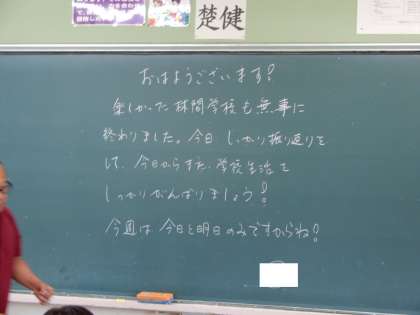 楚健
おはようございます!
楽しかった林間学校も無事に
終わりました。今日しっかり振り返りを
して、今日からまた、学校生活を
しっかりがんばりましょう!
今週は今日と明日のみですからね!